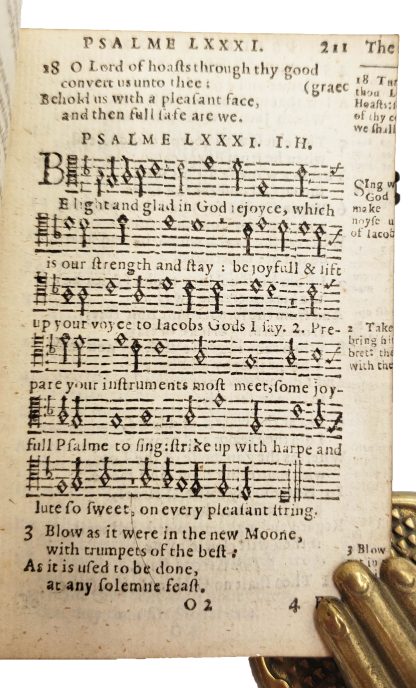 PSALME LXXXI. 211
18 O Lord of hoasts through thy good
convert us unto thee : (graec
Behold us with a pleasant face,
and then full safe are we.
PSALME LXXXI. I. H.
BE light and glad in God rejoyce, which
is our strength and stay : be joyfull & lift
up your voyce to Iacobs Gods I say. 2. Pre-
pare your instruments most meet, some joy-
full Psalme to sing: strike up with harpe and
lute so sweet, on every pleasant string.
3 Blow as it were in the new Moone,
with trumpets of the best :
As it is used to be done,
at any solemne feast.
O 2 4
The
18. Tur
thou L
Hoasts:
of thy c
we shall
SIng w
God
make
noyse u
of Iacob
2 Take
bring hit
bret: the
with the
3 Blow